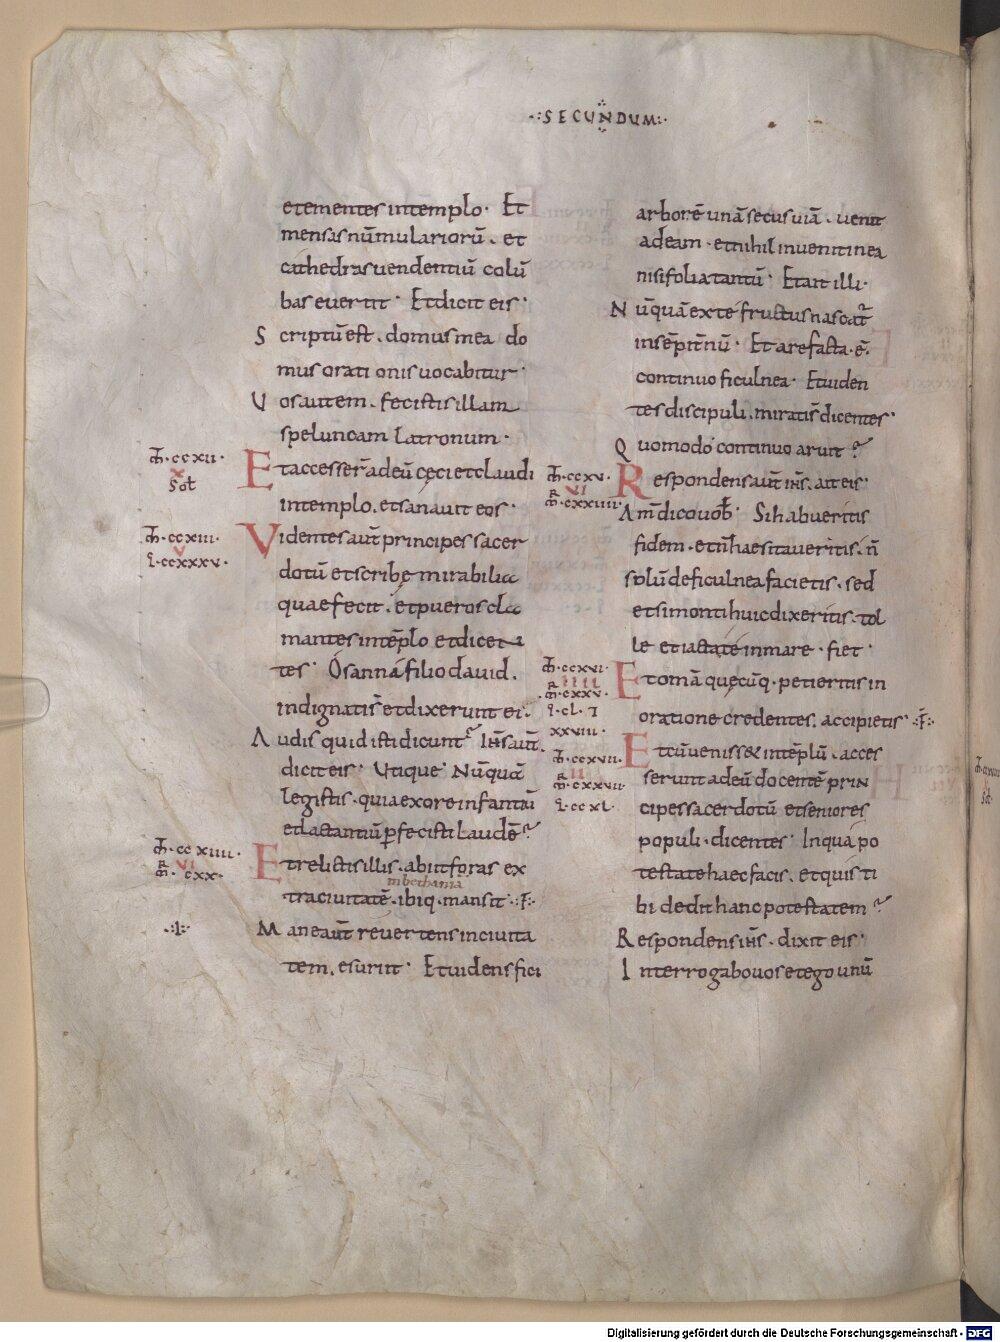 ·:SECUNDUM:·
etementes intemplo· Et
mensas nūmulariorū. et
cathedras uendentiū colū
bas euertit· Et dicit eis·
Scriptū est. domus mea do
mus orationis uocabitur·
Vos autem. fecistis illam
speluncam latronum·
m̄·ccxii·
x
Sol
Et accesser̄ adeū cęci et claudi
intemplo. et sanauit eos·
m̄·ccxiii·
v
l·ccxxxv·
Videntes aūt principes sacer
dotū et scribę mirabilia
quae fecit. et pueros cla
mantes intēplo et dicen
tes· Osanna filio dauid.
indignatis̄ et dixerunt ei·
Audis quid isti dicunt? Ih̄s aūt.
dicit eis· Utique· Nūquā
legistis· quia exore infantiū
et lactantiū p̄fecisti laudē?
m̄·ccxiiii·
vi
m̄·cxx·
Et relictis illis. abiit foras ex
in bethania
tra ciuitatē. ibiq· mansit·:F:·
·:l:·
Mane aūt reuertens in ciuita
tem. esuriit· Et uidens fici
arborē unā secus uiā. uenit
ad eam· et nihil inuenit in ea
nisi folia tantū· Et ait illi·
Nūquā ex te fructus nascat̄
insēpitn̄ū· Et arefacta·ē·
continuo ficulnea· Et uiden
tes discipuli. miratis̄ dicentes·
Quomodo continuo aruit?
m̄·ccxv·
vi
m̄·cxxiiii·
Respondens aūt ih̄s. ait eis·
Am̄ dico uob̄· Si habueritis
fidem· et n̄ haesitaueritis. n̄
solū de ficulnea facietis. sed
et si monti huic dixeritis. tol
le et iactate inmare· fiet·
m̄·ccxvi·
iiii
m̄·cxxv·
l·cl·7
xxviii·
Et omā quęcūq· petieritis in
oratione credentes. accipietis·:F:·
m̄·ccxvii·
ii
m̄·cxxvii·
l·ccxl·
Et cū uenisset intēplū. acces
serunt ad eū docentē prin
cipes sacerdotū et seniores
populi· dicentes· In qua po
testate haec facis. et quis ti
bi dedit hanc potestatem?
Respondens ih̄s. dixit eis·
Interrogabo uos et ego unū
Digitalisierung gefördert durch die Deutsche Forschungsgemeinschaft - DFG